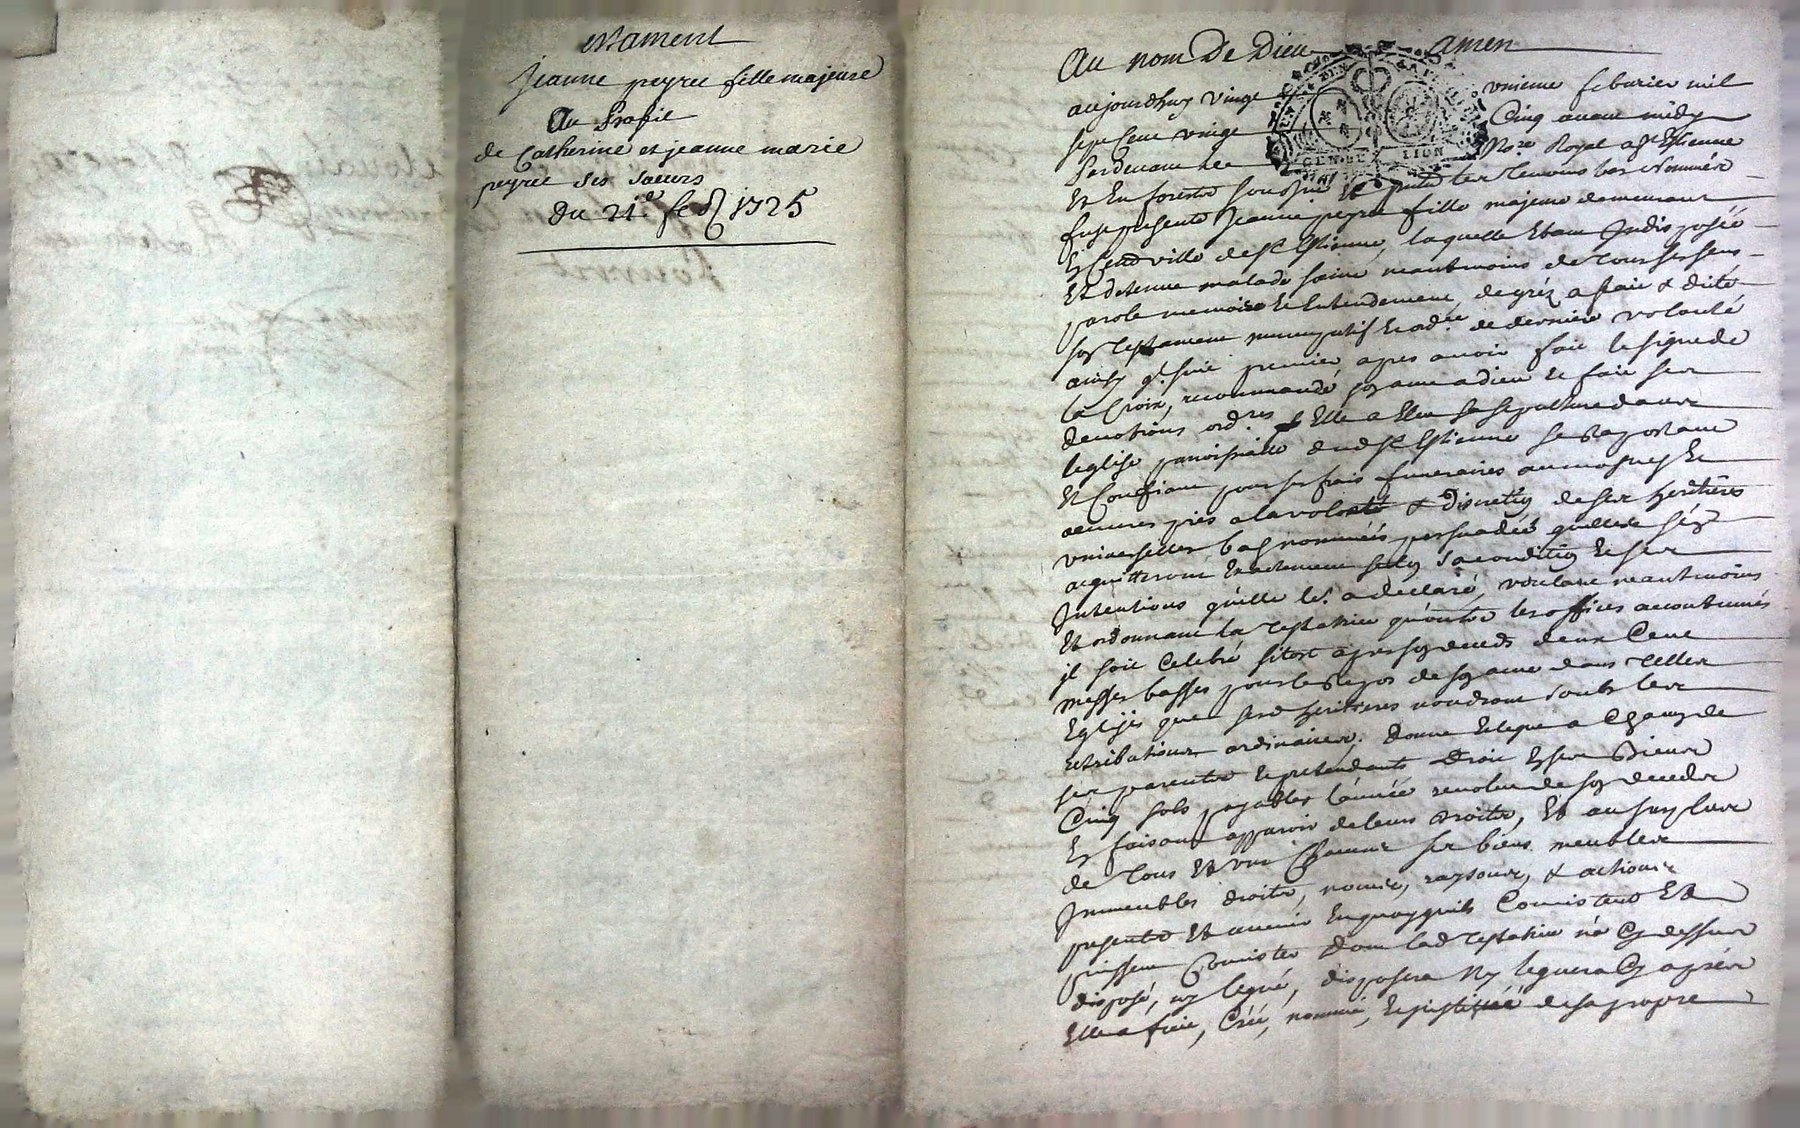 estament
Jeanne peyre fille majeure
Au profit
de Catherine et jeanne marie
peyre ses soeurs
du 21e feb 1725
Au nom De Dieu amen
aujourdhuy vingt unieme febvrier mil
sept cent vingt Cinq avant midy
Pardevant le Nore Royal a St Estienne
Et En forests soussigné Et presents les temoins bas nommés
fust presente Jeanne peyre fille majeure demeurant
En cette ville de St Estienne, laquelle Estant Indisposée
Et detenue malade saine neantmoins de tous ses sens
parole memoire Et Entendement, de gréz a fait & dicté
son testament nuncupatif Et ordce de derniere volonté
ainsy q. suit premier apres avoir fait le signe de
la Croix, recommandé son ame a dieu Et fait ses
devotions ordres Elle a Eleu sa sepulture dans
leglise paroissialle dud St Estienne se Raportant
Et Confiant pour ses frais funeraires aumosnes Et
oeuvres pies a la volonté & discretion de ses heritieres
universelles bas nommées persuadée quelles sen
aquitteront Exactement selon sa condition Et ses
Intentions quelle les a declaré, voulant neantmoins
Et ordonnant la testatrice quoutre les offices accoutumés
il soit Celebré sitost apres son deceds deux Cent
messes basses pour le Repos de son ame dans telles
Eglises que sesd heritieres voudront soubs les
retributions ordinaires. Donne Et legue a Chacun de
ses parents Et pretendants Droit En ses Biens
Cinq sols payables lannée revolue de son deceds
En faisant apparoir de leurs droits, Et au surplus
de tous Et uns Chacuns ses biens meubles
Immeubles droits, noms, raysons, & actions
presents Et avenir En quoy quils Consistent Et
puissent Consister Dont lad testatrice na Cy dessus
disposé, ny legué, disposera Ny leguera Cy apres
Elle a fait, Créé, nommé, Et institué de sa propre